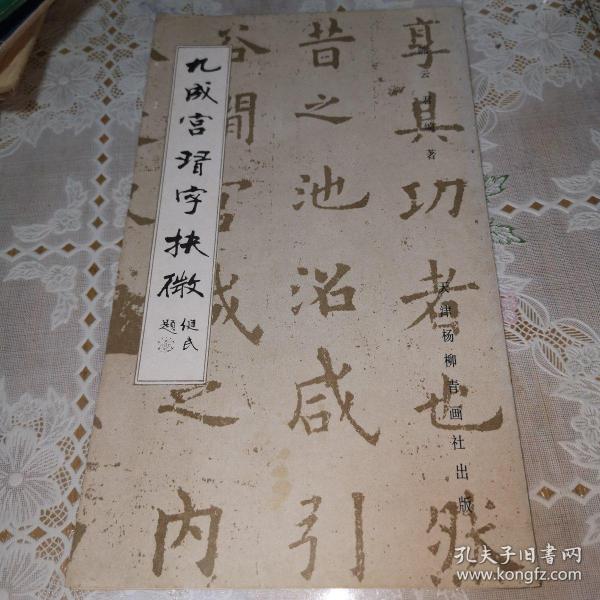 九成宫习字抉微
继民
题
云
著
天津杨柳青画社出版
享具功者也然
昔之池沼咸引
谷涧宫城之内
孔夫子旧书网
www.kongfz.com